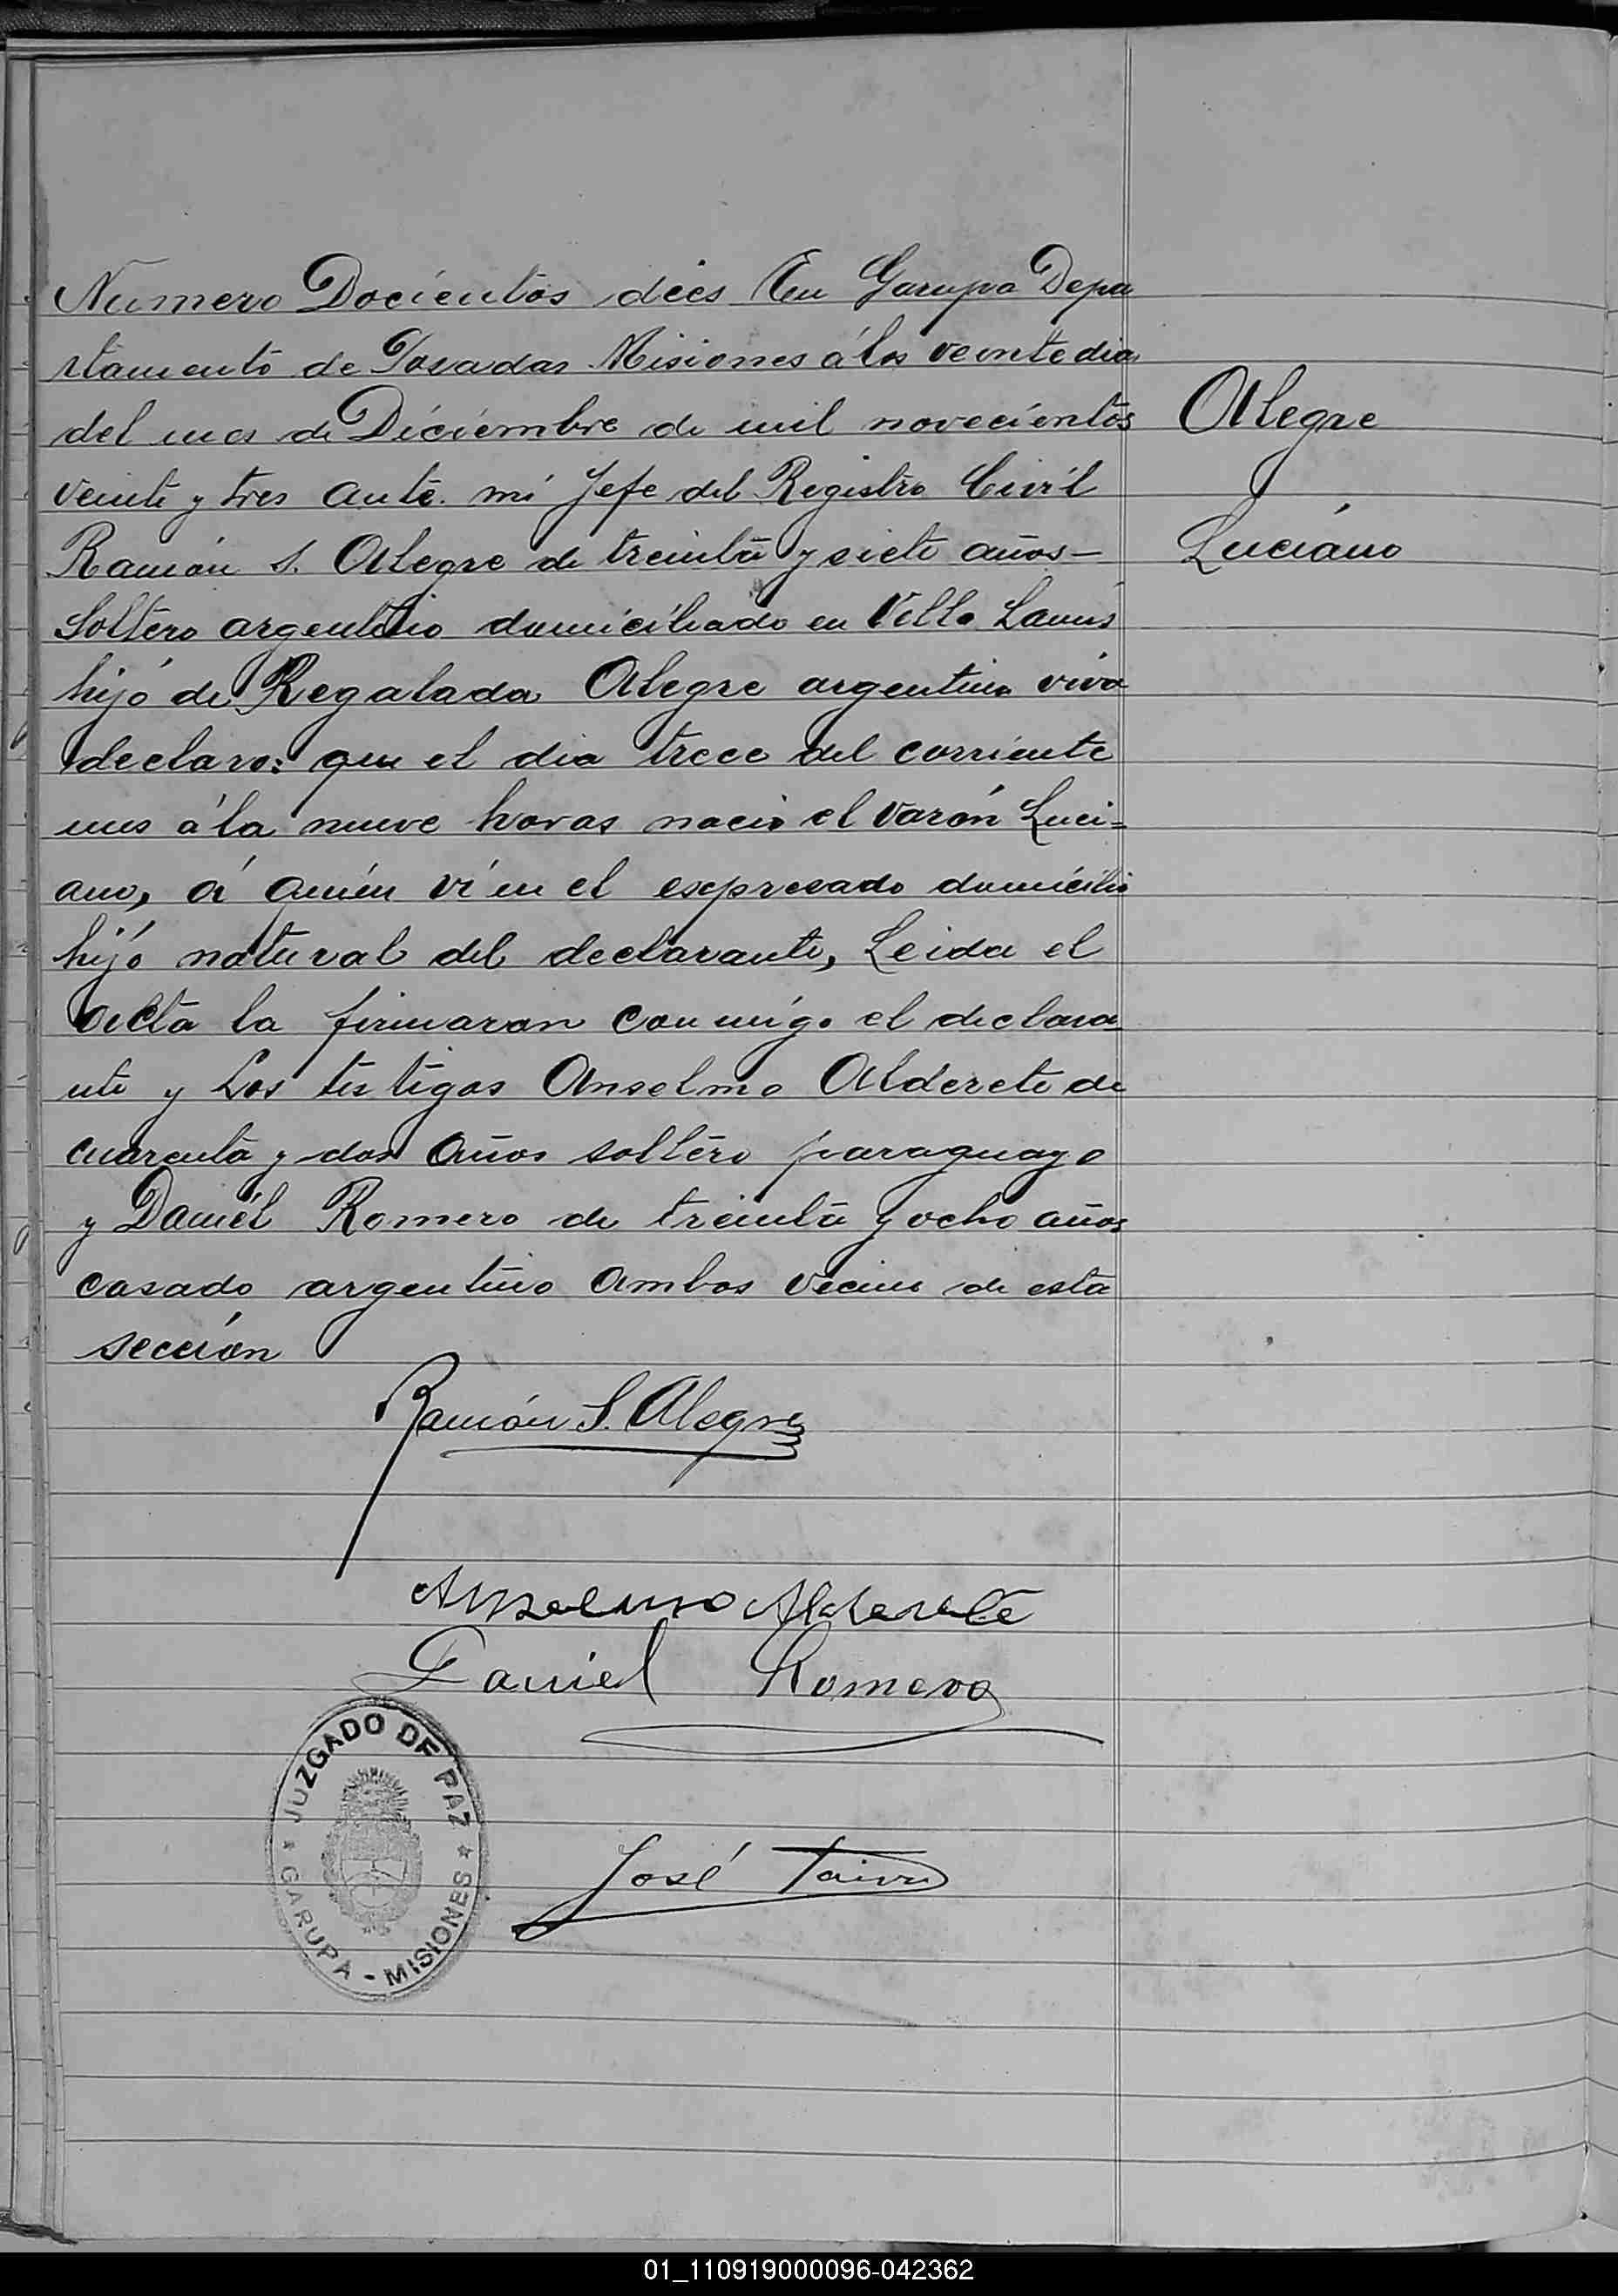 Numero Docientos diés En Garupa Depa
rtamento de Posadas Misiones á los veinte dias
del mes de Diciembre de mil novecientos
veinte y tres ante mi Jefe del Registro Civil
Ramón S. Alegre de treinta y siete años—
Soltero argentino domiciliado en Villa Lanús
hijo de Regalada Alegre argentina viva
declaro: que el dia trece del corriente
mes á la nueve horas nacio el varón Luci=
ano, á quién ví en el expresado domicilio
hijo natural del declarante, Leida el
acta la firmaron conmigo el declara
nte y Los testigos Anselmo Alderete de
cuarenta y dos años soltero paraguayo
y Daniél Romero de treinta y ocho años
casado argentino ambos vecino de esta
sección
Alegre
Luciano
Ramón S. Alegre
Anselmo Alderete
Daniel Romero
JUZGADO DE PAZ
GARUPA - MISIONES
José
01_110919000096-042362